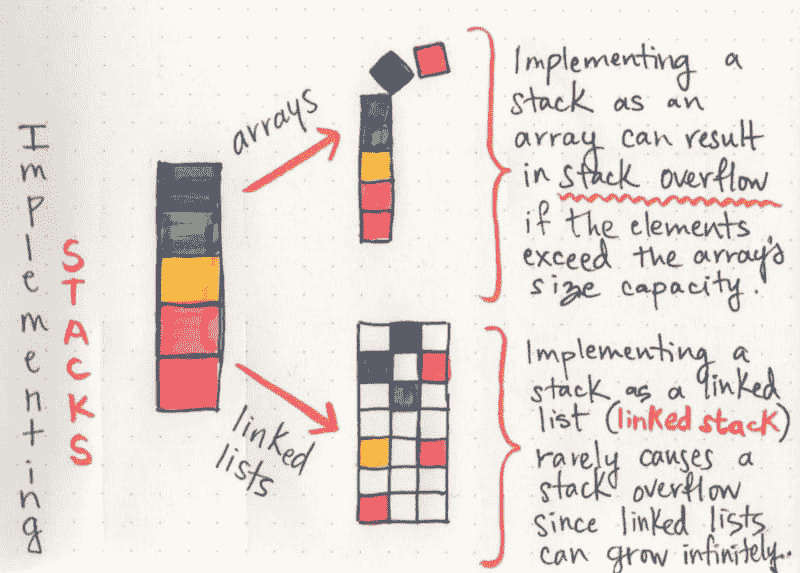 Implementing
STACKS
arrays
Implementing a
stack as an
array can result
in stack overflow
if the elements
exceed the array's
size capacity.
linked
lists
Implementing a
stack as a linked
list (linked stack)
rarely causes a
stack overflow
since linked lists
can grow infinitely..